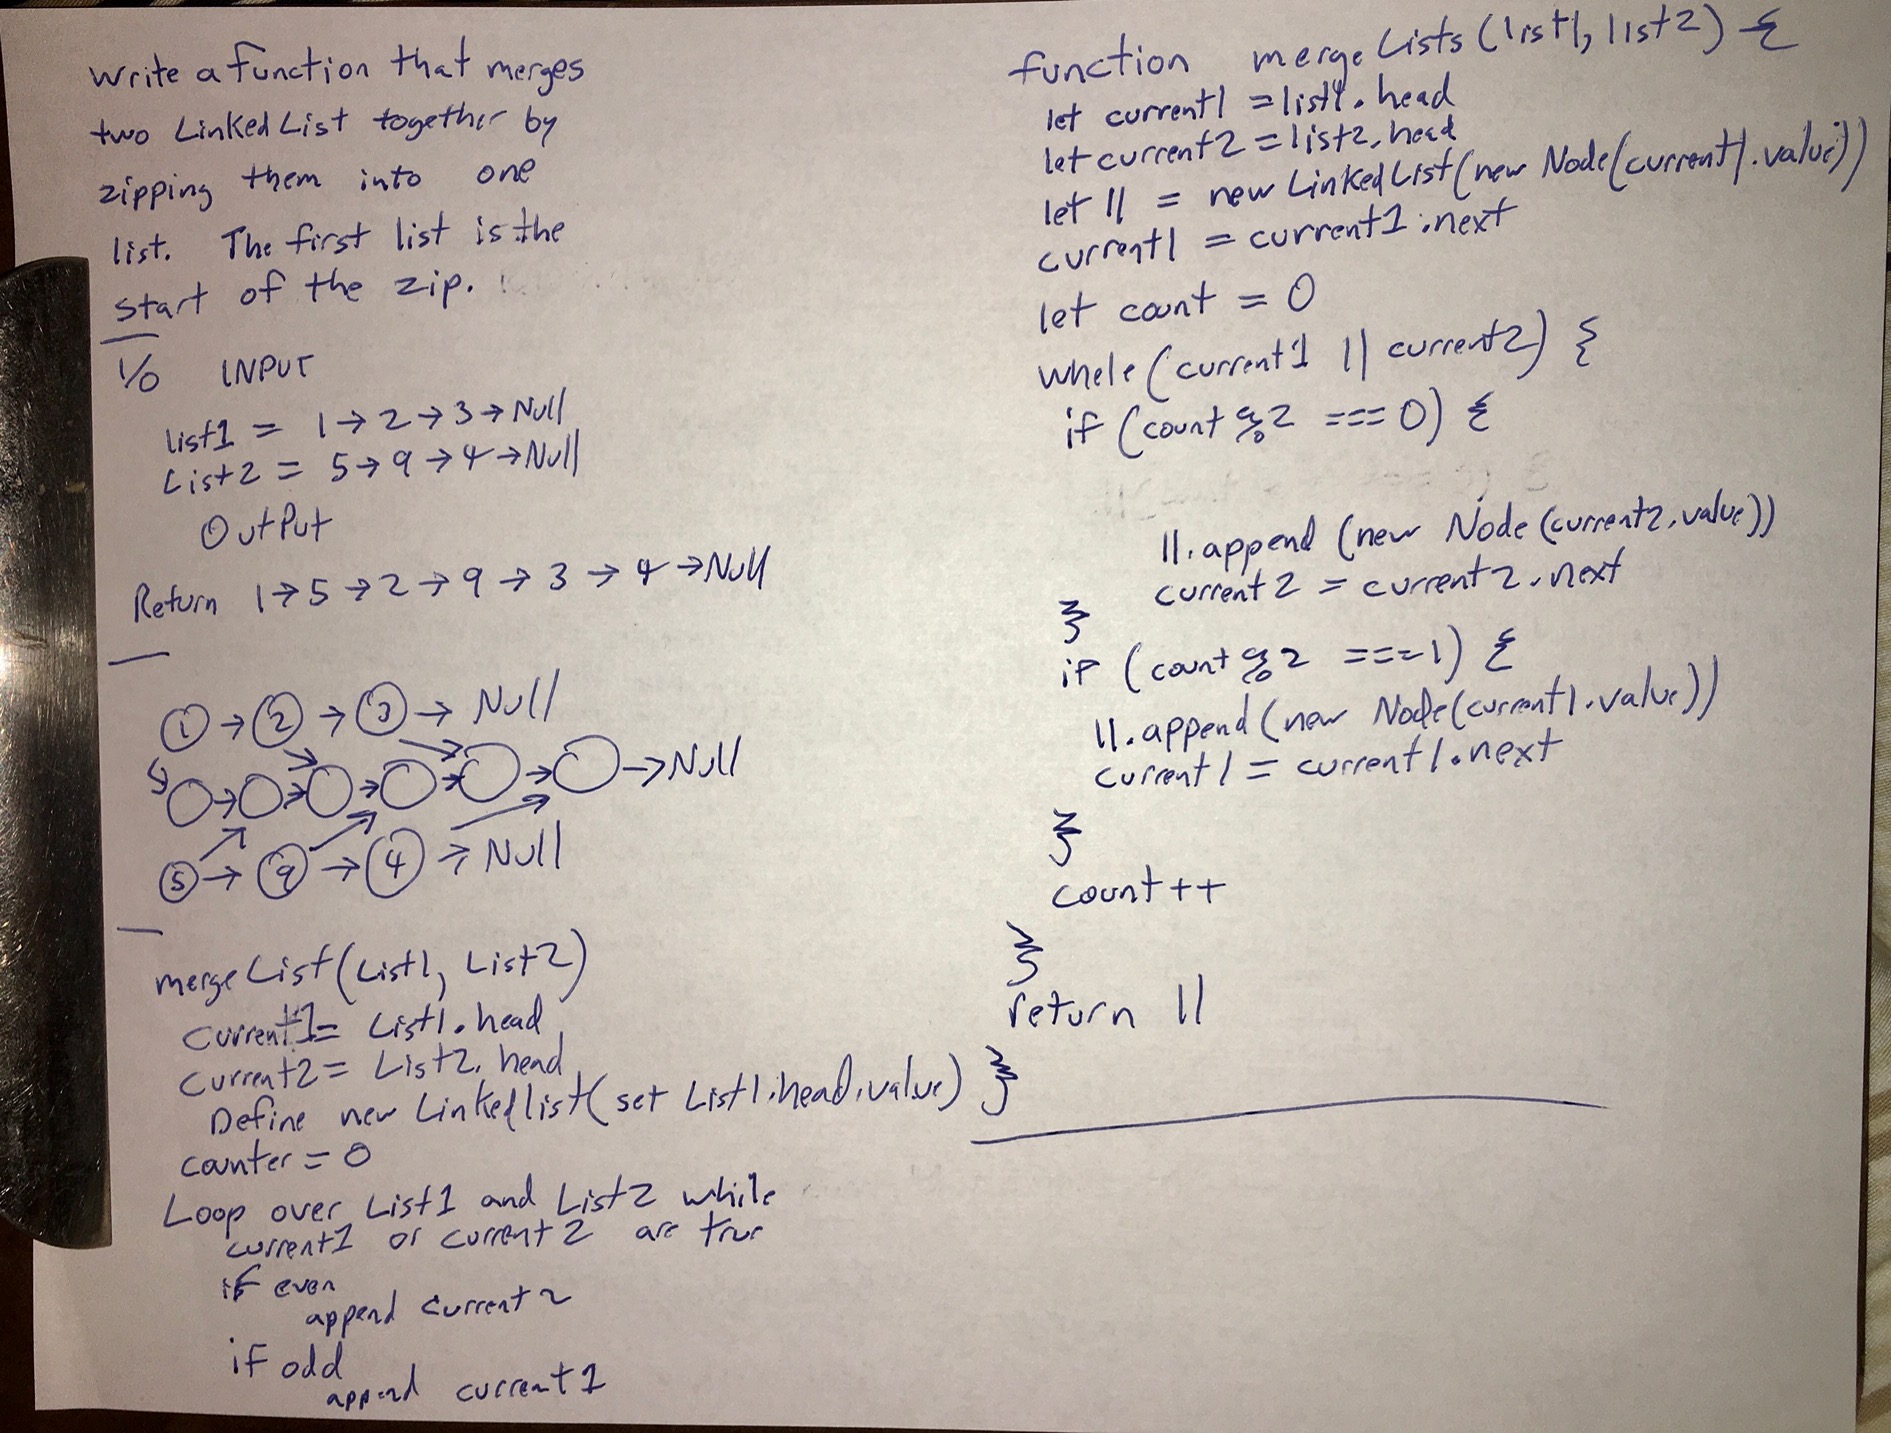 Write a function that merges
two Linked List together by
zipping them into one
list. The first list is the
start of the zip.
I/O INPUT
list1 = 1→2→3→Null
List2 = 5→9→4→Null
OutPut
Return 1→5→2→9→3→4→Null
1→2→3→Null
→Null
5→9→4→Null
mergeList(List1, List2)
Current1= List1.head
Current2= List2.head
Define new Linkedlist(set List1.head.value)
counter = 0
Loop over List1 and List2 while
current1 or current2 are true
if even
append current2
if odd
append current1
function mergeLists(list1, list2) {
let current1 = list1.head
let current2 = list2.head
let ll = new LinkedList(new Node(current1.value))
current1 = current1.next
let count = 0
while (current1 || current2) {
if (count % 2 === 0) {
ll.append (new Node (current2.value))
current2 = current2.next
}
if (count % 2 === 1) {
ll.append (new Node(current1.value))
current1 = current1.next
}
count++
}
return ll
}